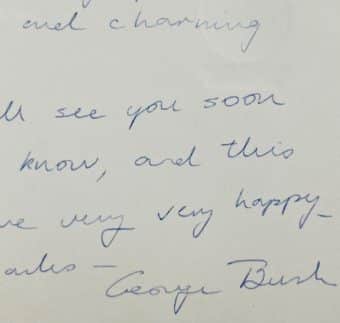 and charming
see you soon
know, and this
very very happy
George Bush